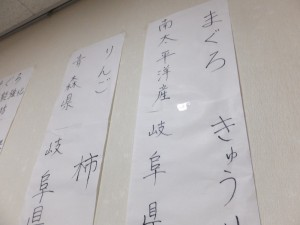 まぐろ きゅうり
南太平洋産 岐阜県
りんご 柿
青森県 岐阜県